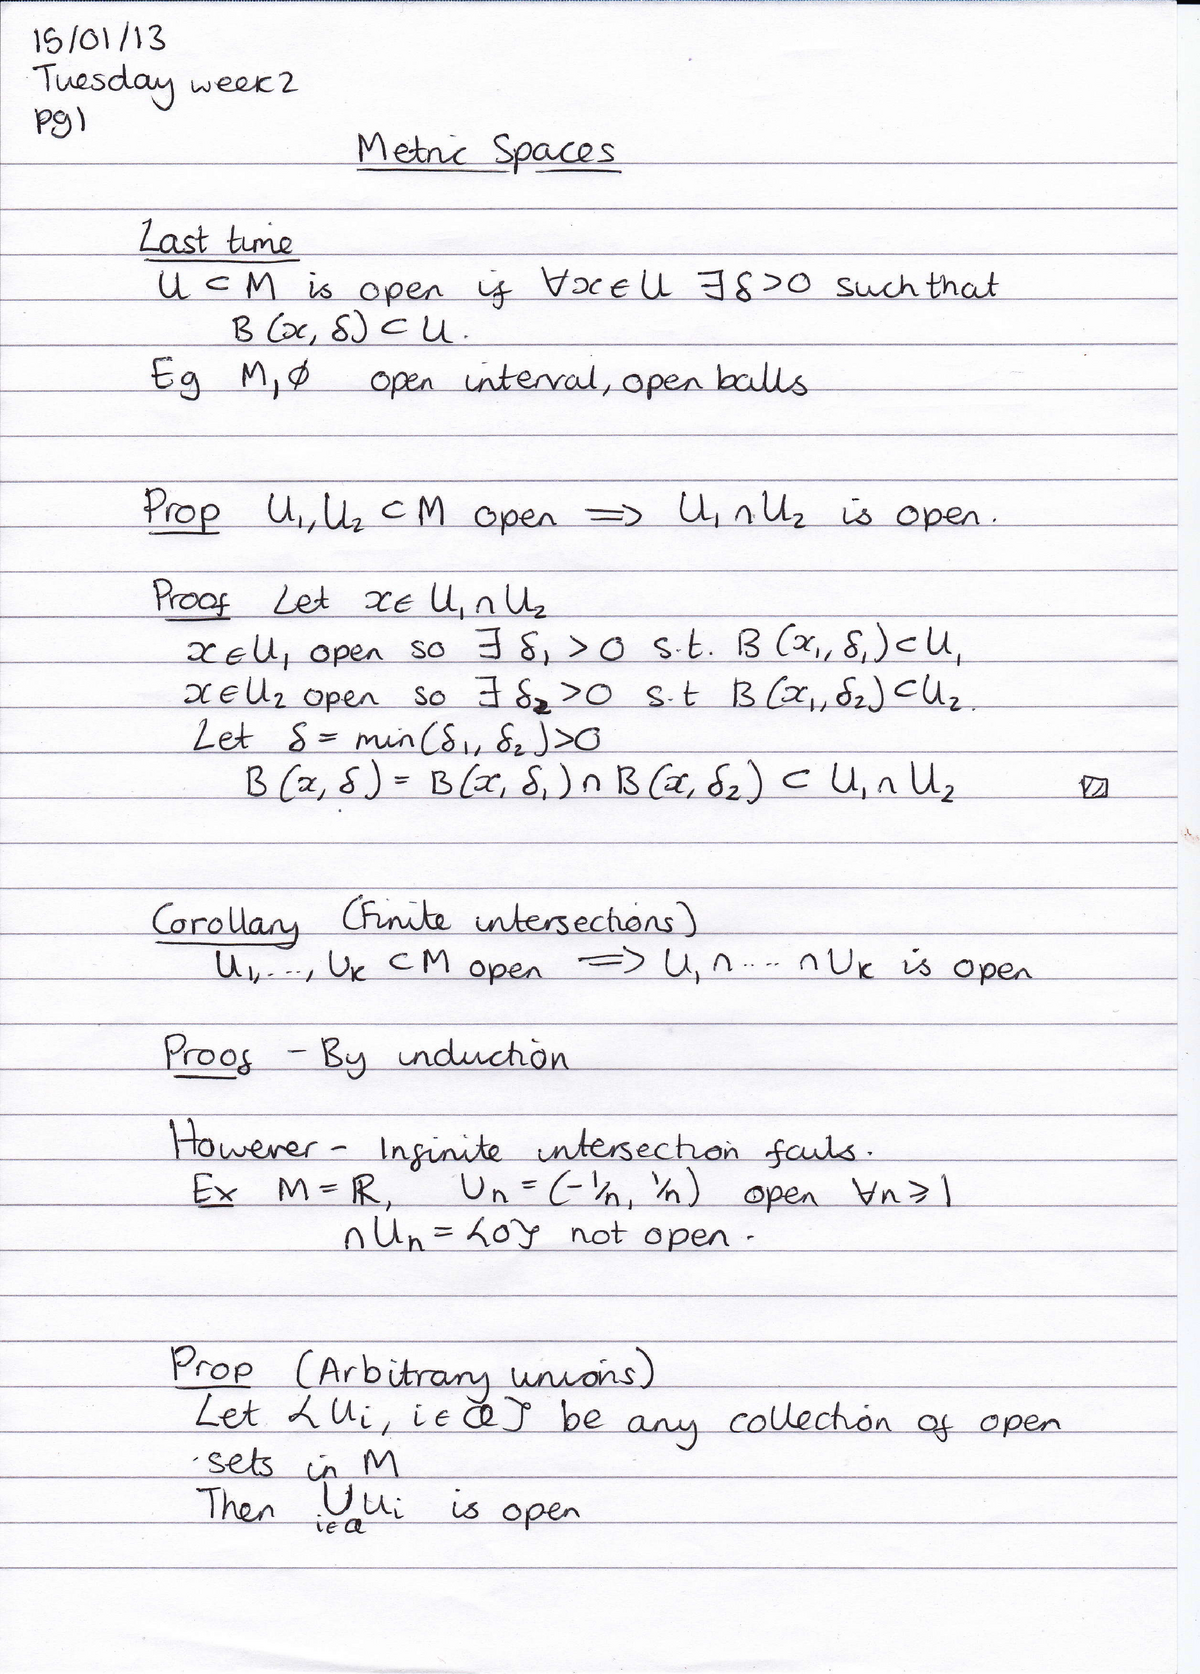 15/01/13
Tuesday week 2
pg 1
Metric Spaces
Last time
U ⊂ M is open if ∀x∈U ∃δ>0 such that
B(x, δ) ⊂ U.
Eg M, ∅ open interval, open balls
Prop U₁, U₂ ⊂ M open ⟹ U₁ ∩ U₂ is open.
Proof Let x∈ U₁ ∩ U₂
x∈U₁ open so ∃ δ₁ > 0 s.t. B(x₁, δ₁) ⊂ U₁
x∈U₂ open so ∃ δ₂ > 0 s.t B(x₁, δ₂) ⊂ U₂.
Let δ = min(δ₁, δ₂) > 0
B(x, δ) = B(x, δ₁) ∩ B(x, δ₂) ⊂ U₁ ∩ U₂
Corollary (Finite intersections)
U₁, ..., Uₖ ⊂ M open ⟹ U₁ ∩ .... ∩ Uₖ is open
Proof - By induction
However - Infinite intersection fails.
Ex M = ℝ, Uₙ = (-1/n, 1/n) open ∀n ≥ 1
∩ Uₙ = {0} not open.
Prop (Arbitrary unions)
Let {Uᵢ, i∈ a} be any collection of open
sets in M
Then ⋃ Uᵢ is open
i∈a